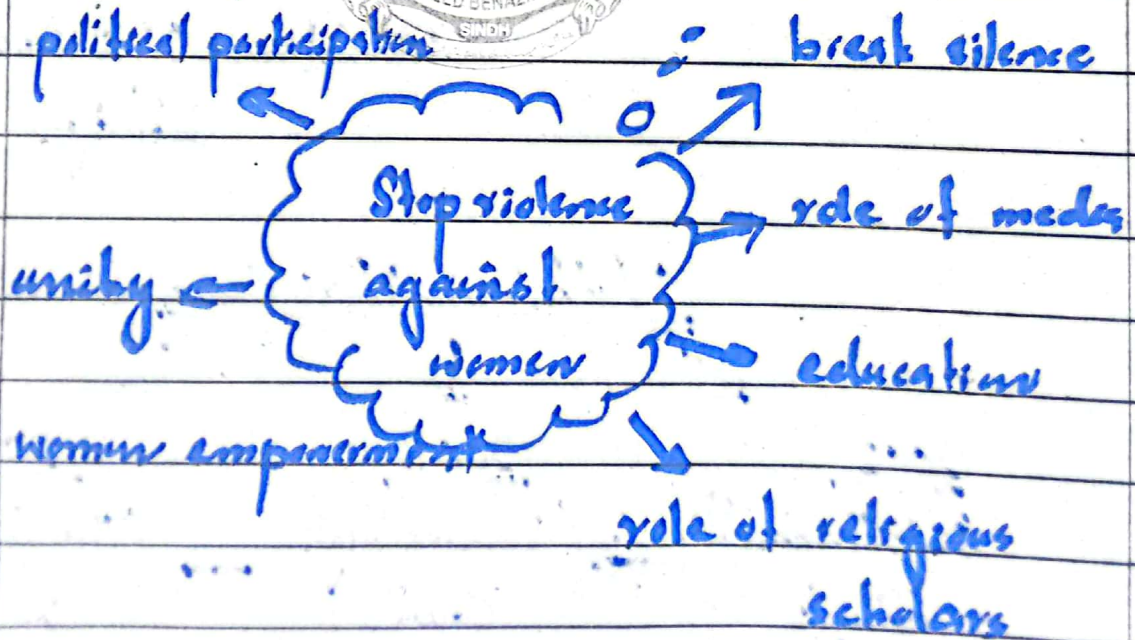 SINDH
political participation
break silence
Stop violence
against
women
role of media
unity
education
women empowerment
role of religious
scholars